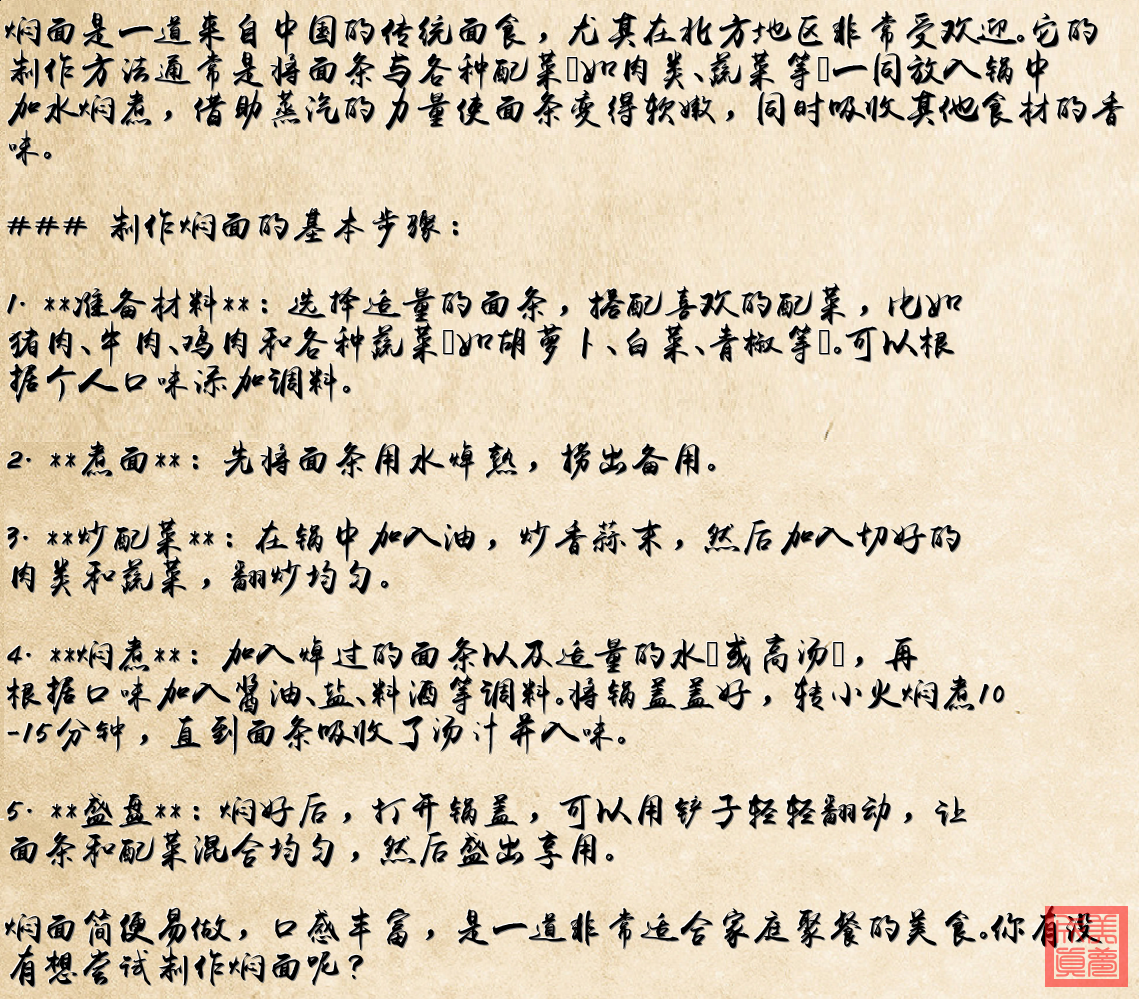 焖面是一道来自中国的传统面食，尤其在北方地区非常受欢迎。它的
制作方法通常是将面条与各种配菜▯如肉类、蔬菜等▯一同放入锅中
加水焖煮，借助蒸汽的力量使面条变得软嫩，同时吸收其他食材的香
味。
### 制作焖面的基本步骤：
1. **准备材料**：选择适量的面条，搭配喜欢的配菜，比如
猪肉、牛肉、鸡肉和各种蔬菜▯如胡萝卜、白菜、青椒等▯。可以根
据个人口味添加调料。
2. **煮面**：先将面条用水焯熟，捞出备用。
3. **炒配菜**：在锅中加入油，炒香蒜末，然后加入切好的
肉类和蔬菜，翻炒均匀。
4. **焖煮**：加入焯过的面条以及适量的水▯或高汤▯，再
根据口味加入酱油、盐、料酒等调料。将锅盖盖好，转小火焖煮10
-15分钟，直到面条吸收了汤汁并入味。
5. **盛盘**：焖好后，打开锅盖，可以用铲子轻轻翻动，让
面条和配菜混合均匀，然后盛出享用。
焖面简便易做，口感丰富，是一道非常适合家庭聚餐的美食。你有没
有想尝试制作焖面呢？